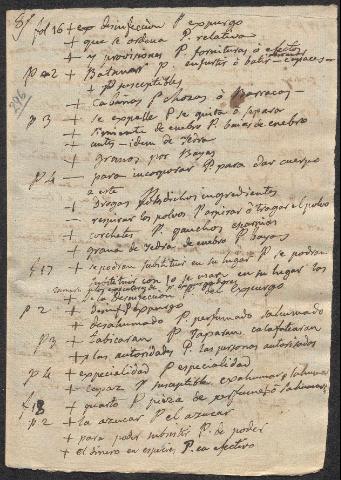 fol 16 + desinfeccion P. espurgo
+ que se ordena P. relativa
+ y provisiones P. fornituras ó efectos
p. 2 + Batanar P. enfurtir ó batir
+ P susceptibles
+ Cabañas P chozas ó barracas
p 3 + se expelle P se quita ó separa
+ simiente de enebro P. baias de enebro
+ idem de yedra
+ granos por Bayas
p. 4 — para incorporar P. para dar cuerpo
a este
+ Drogas P dichos ingredientes
— respirar los polvos P aspirar ó tragar el polvo
+ corchetes P. ganchos
+ grana de yedra de enebro P. bayas
f 17 + se podran substituir en su lugar P. se podran
substituir con
+ de la desinfeccion P. del espurgo
p 2 + P espurgo
+ desahumado P. perfumado sahumado
p 3 + tabicaran P taparan calafatearan
+ a las autoridades P. las personas autorisadas
p. 4 + especialidad P especialidad
+ capaz P susceptible
f 18 + quarto P pieza de perfume ó sahumar
p. 2 + la azucar P el azucar
+ para poder subsistir P. de poder
+ el dinero en especie, P. en efectivo